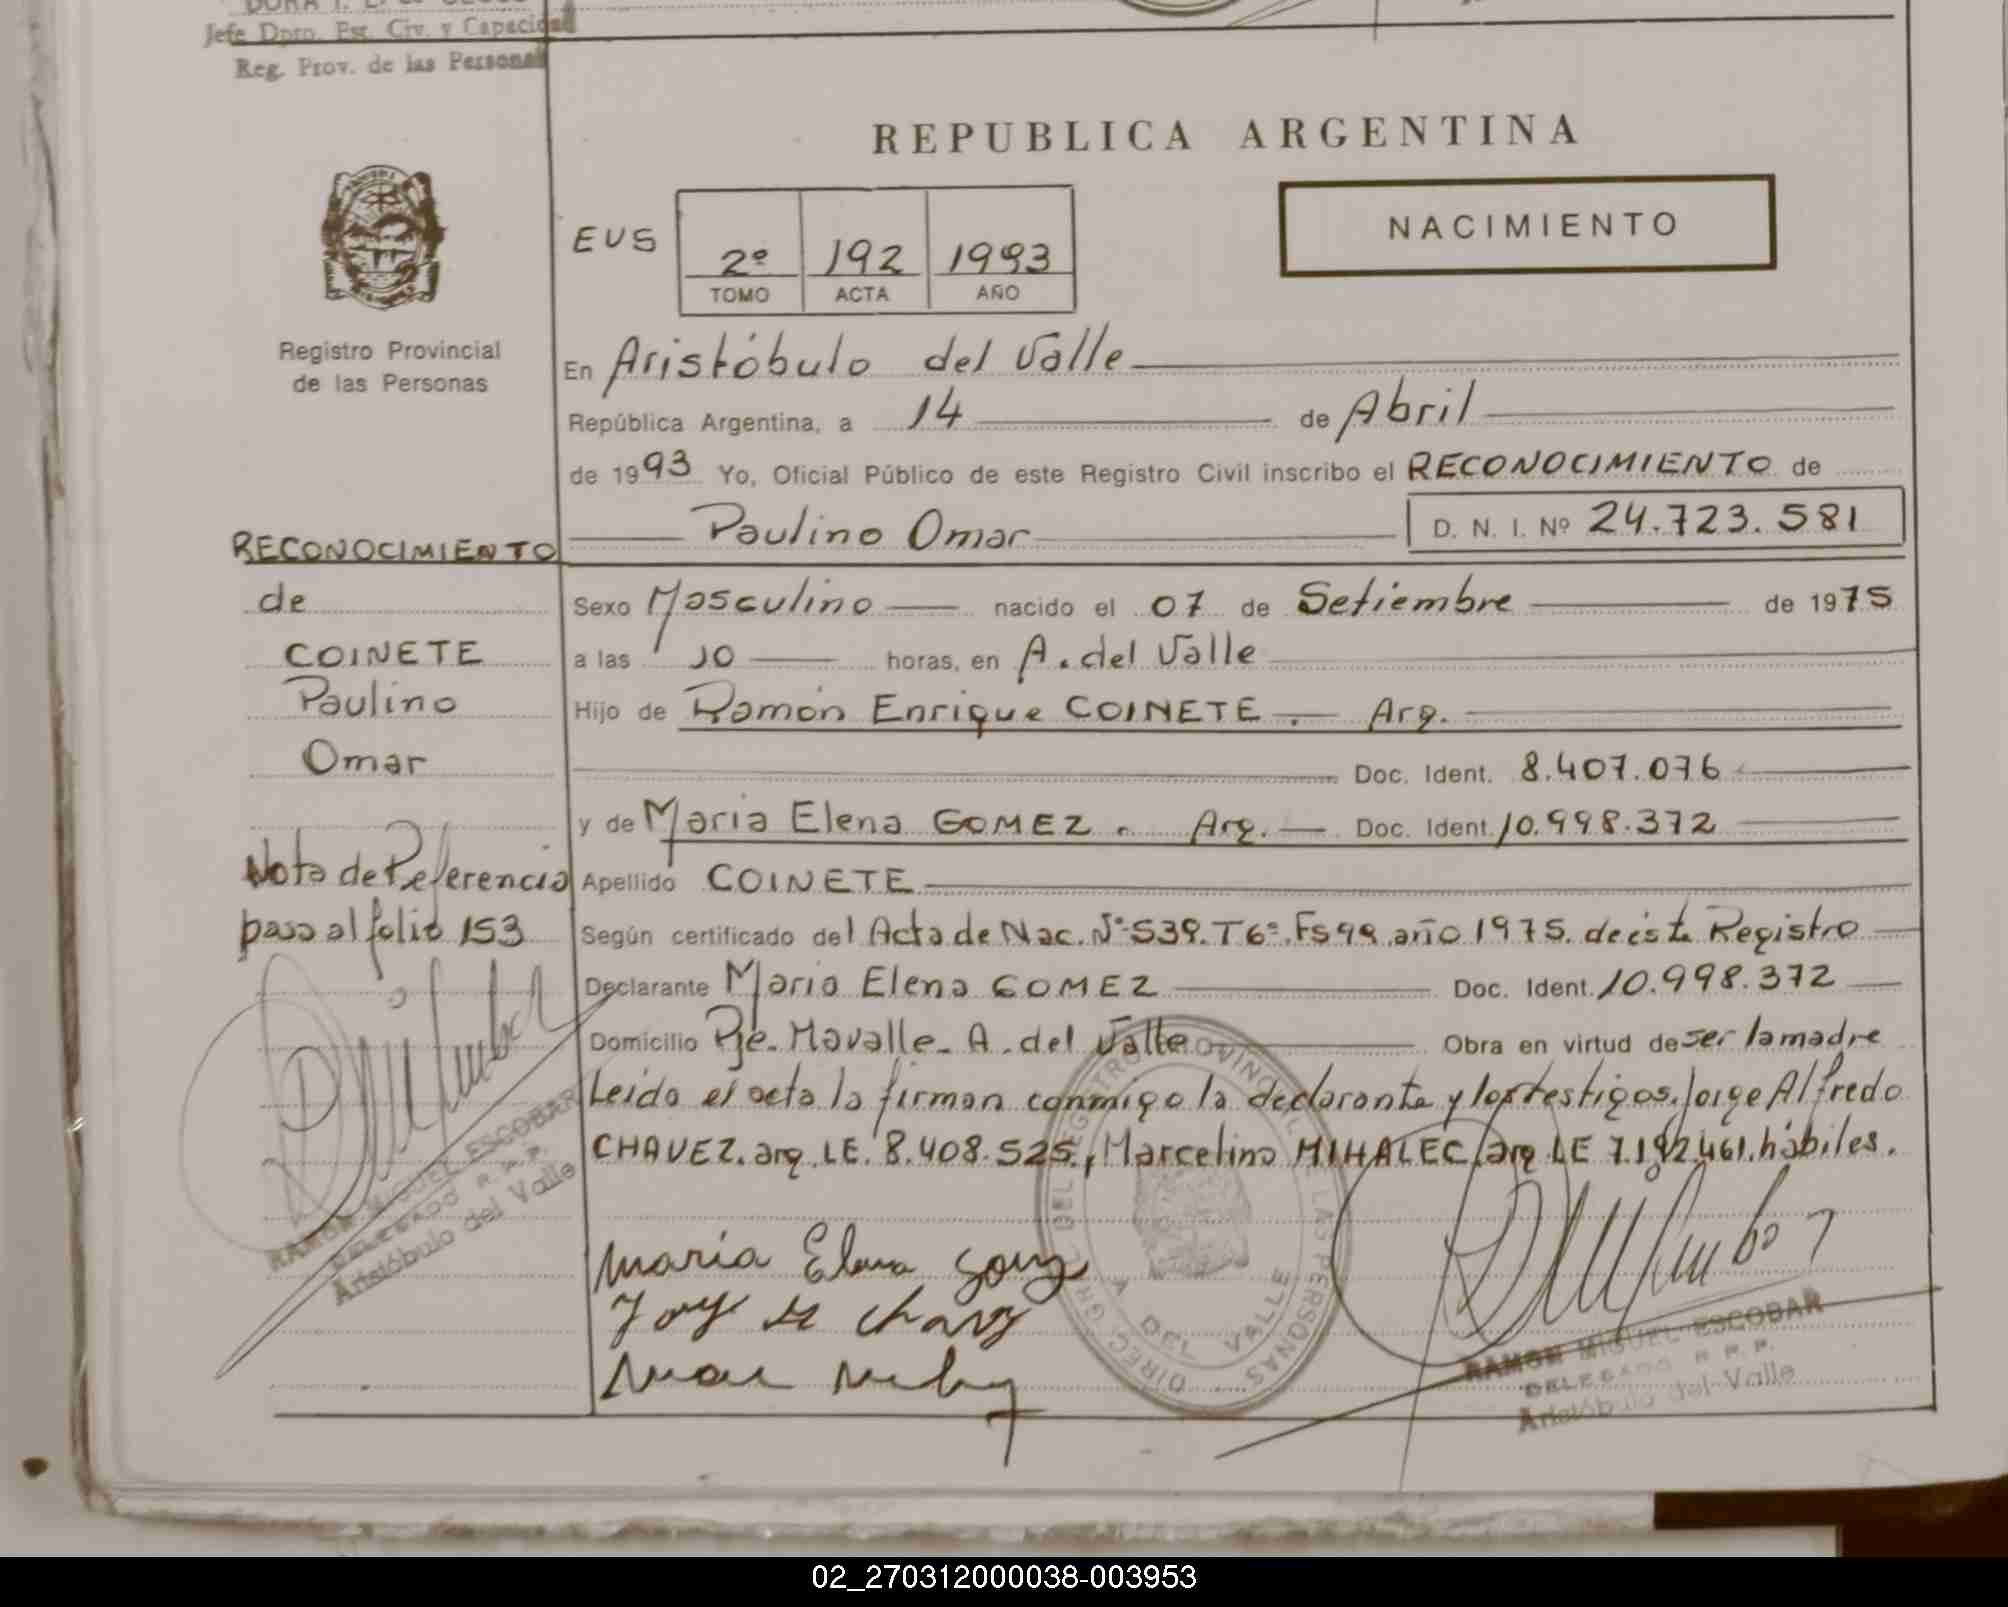 Jefe Dpto. Est. Civ. y Capacidad
Reg. Prov. de las Personas
REPUBLICA ARGENTINA
EUS
2º 192 1993
TOMO ACTA AÑO
NACIMIENTO
Registro Provincial
de las Personas
En Aristóbulo del Valle
República Argentina, a 14 de Abril
de 1993 Yo, Oficial Público de este Registro Civil inscribo el RECONOCIMIENTO de
Paulino Omar D. N. I. Nº 24.723.581
RECONOCIMIENTO
de
COINETE
Paulino
Omar
Nota de Referencia
pasa al folio 153
Sexo Masculino nacido el 07 de Setiembre de 1975
a las 10 horas, en A. del Valle
Hijo de Ramón Enrique COINETE. Arg.
Doc. Ident. 8.407.076
y de Maria Elena GOMEZ. Arg. Doc. Ident. 10.998.372
Apellido COINETE
Según certificado del Acta de Nac. Nº 539. T6º. Fs 99. año 1975. de éste Registro
Declarante Maria Elena GOMEZ Doc. Ident. 10.998.372
Domicilio Pje. Mavalle. A. del Valle Obra en virtud de ser la madre
Leido el acta la firman conmigo la declarante y los testigos. Jorge Alfredo
CHAVEZ. arg. LE. 8.408.525., Marcelino MIHALEC. arg LE 7.192.461. hábiles.
RAMON MIGUEL ESCOBAR
DELEGADO R. P. P.
Aristóbulo del Valle
Maria Elena
DIREC. GRL. DEL REGISTRO PROVINCIAL DE LAS PERSONAS
A DEL VALLE
RAMON MIGUEL ESCOBAR
DELEGADO R. P. P.
Aristóbulo del Valle
02_270312000038-003953